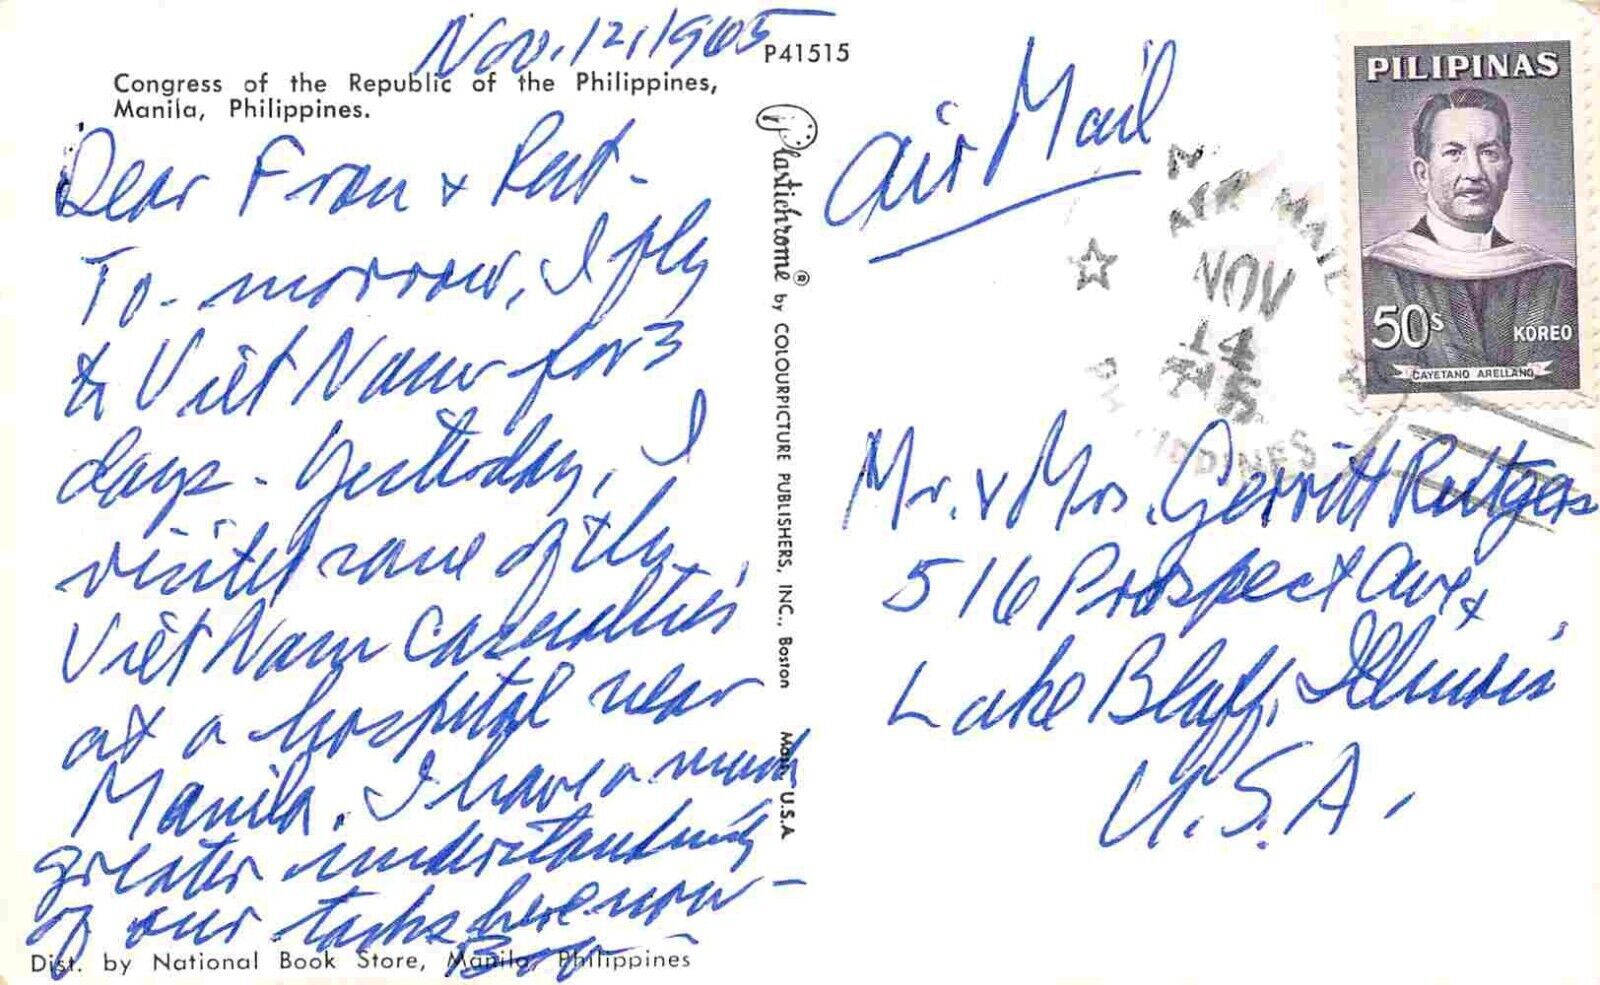 Nov. 12, 1965
P41515
Congress of the Republic of the Philippines,
Manila, Philippines.
Dear Fran &
To-morrow, I fly
to Viet Nam for 3
days. Yesterday, I
visited some of the
Viet Nam Casualties
at a hospital near
Manila. I have a much
greater understanding
of our tasks here now -
Bob
Dist. by National Book Store, Manila, Philippines
Plastichrome® by COLOURPICTURE PUBLISHERS, INC., Boston Mass. U.S.A
Air Mail
AIR MAIL
NOV
14
PHILIPPINES
PILIPINAS
50s
KOREO
CAYETANO ARELLANO
Mr. & Mrs. Gerritt Rutgers
516 Prospect Ave,
Lake Bluff, Illinois
U.S.A.